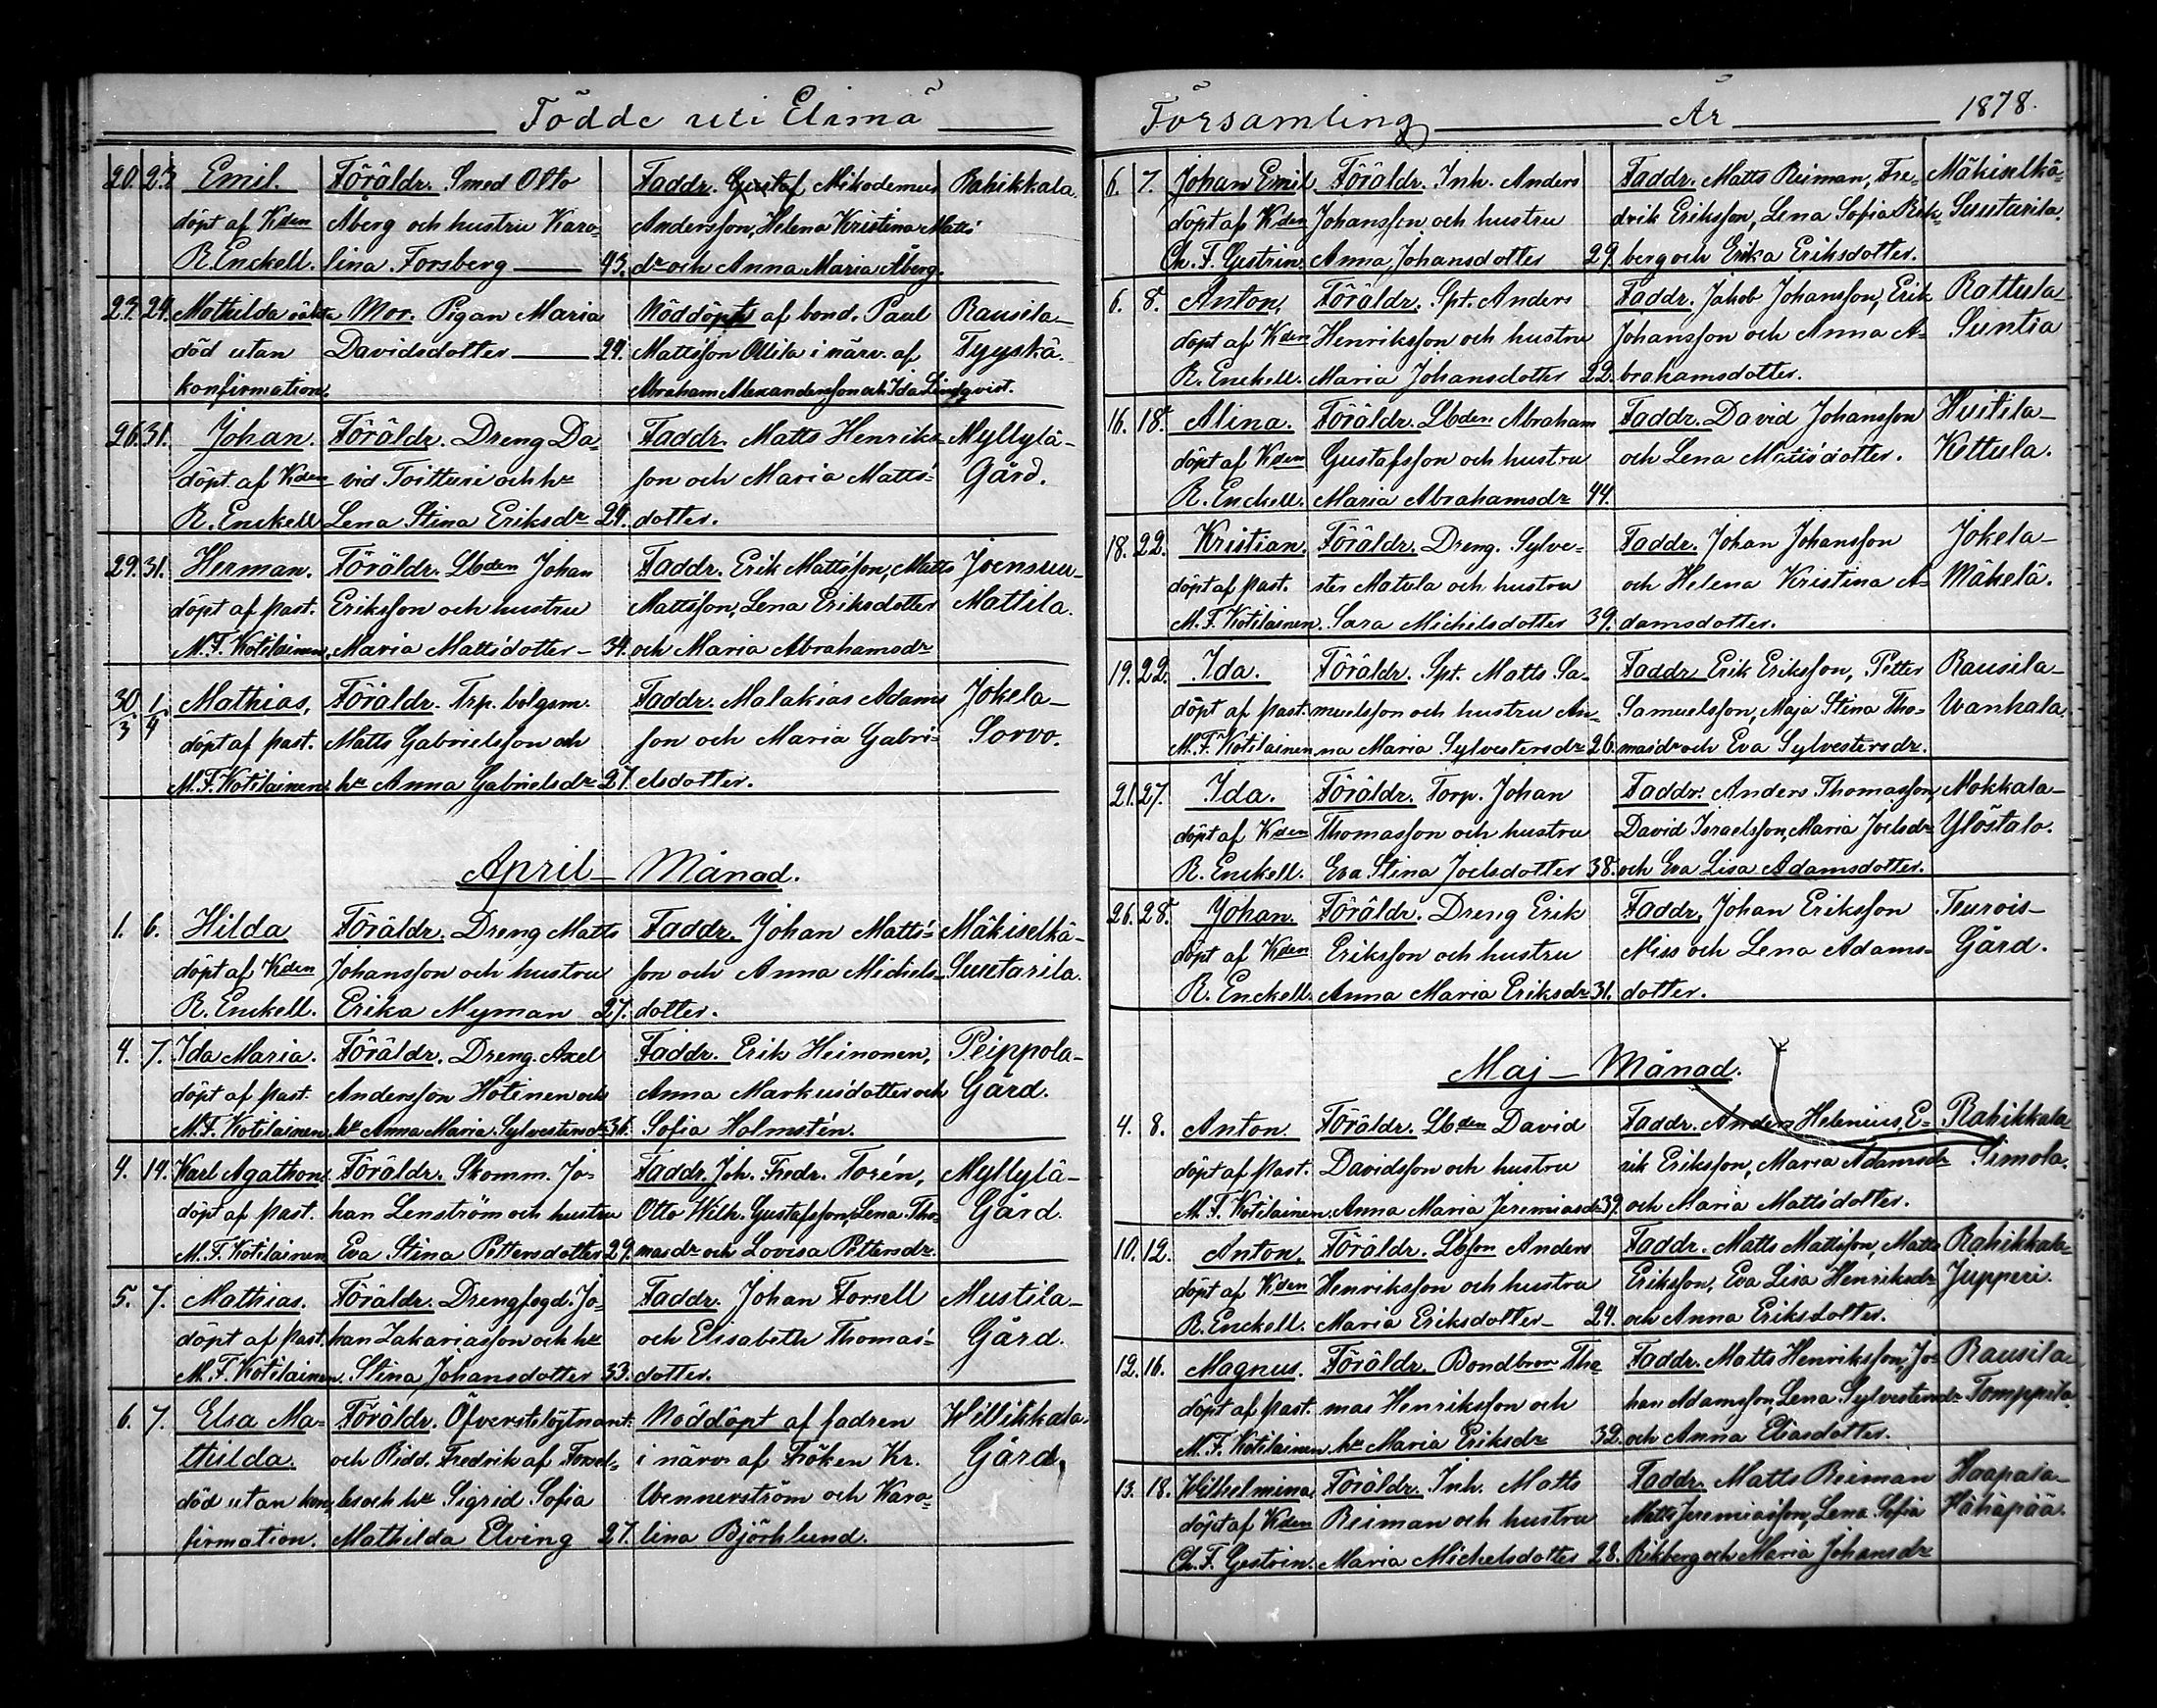 Födde uti Elimä
20. 23. Emil. Föräldr. Smed Otto Faddr. Gustaf Nikodemus Rahikkala.
döpt af Kden Åberg och hustru Karo- Andersson, Helena Kristina Matts-
R. Enckell. lina Forsberg — 43. dr och Anna Maria Åberg.
23. 24. Mathilda oäkta Mor. Pigan Maria Nöddöpt af bond. Paul Rausila-
död utan Davidsdotter — 24. Mattsson Ollila i närv. af Tyyskä.
konfirmation. Abraham Alexandersson och Ida Lindqvist.
26. 31. Johan. Föräldr. Dreng Da- Faddr. Matts Henriks- Myllylä-
döpt af Kden vid Toitturi och hu son och Maria Matts- Gård.
R. Enckell Lena Stina Eriksdr 29. dotter.
29. 31. Herman. Föräldr. Lbden Johan Faddr. Erik Mattsson, Matts Joensuu-
döpt af past. Eriksson och hustru Mattsson, Lena Eriksdotter Mattila.
M. F. Kotilainen. Maria Mattsdotter – 34. och Maria Abrahamsdr
30/3 1/4 Mathias, Föräldr. Trp. bolgsm. Faddr. Malakias Adams Jokela-
döpt af past. Matts Gabrielsson och son och Maria Gabri- Sorvo.
M. F. Kotilainen. hu Anna Gabrielsdr 27. elsdotter.
April – Månad.
1. 6. Hilda Föräldr. Dreng Matts Faddr. Johan Matts- Mäkiselkä-
döpt af Kden Johansson och hustru son och Anna Michels- Suutarila.
R. Enckell. Erika Nyman 27. dotter.
4. 7. Ida Maria. Föräldr. Dreng. Axel Faddr. Erik Heinonen, Peippola-
döpt af past. Andersson Hotinen och Anna Markusdotter och Gård.
M. F. Kotilainen. hu Anna Maria Sylvestersdr 36. Sofia Holmstén.
4. 14. Karl Agathon. Föräldr. Skomm. Jo- Faddr. Joh. Fredr. Torén, Myllylä-
döpt af past. han Lenström och hustru Otto Wilh. Gustafsson, Lena Tho- Gård.
M. F. Kotilainen Eva Stina Pettersdotter 29. masdr och Lovisa Pettersdr.
5. 7. Mathias. Föräldr. Drengfogd. Jo- Faddr. Johan Forsell Mustila-
döpt af past. han Zakariasson och hu och Elisabeth Thomas- Gård.
M. F. Kotilainen. Stina Johansdotter 33. dotter.
6. 7. Elsa Ma- Föräldr. Öfverstelöjtnant. Nöddöpt af fadren Willikkala-
thilda. och Ridd. Fredrik af Forsel- i närv. af Fröken Kr. Gård.
död utan kon- les och hu Sigrid Sofia Wennerström och Karo-
firmation. Mathilda Elving 27. lina Björklund.
Församling År 1878.
6. 7. Johan Emil Föräldr. Inh. Anders Faddr. Matts Reiman, Fre- Mäkiselkä-
döpt af Kden Johansson och hustru drik Eriksson, Lena Sofia Rik- Suutarila.
Ch. F. Gestrin. Anna Johansdotter 29. berg och Erika Eriksdotter.
6. 8. Anton, Föräldr. Spt. Anders Faddr. Jakob Johansson, Erik Rattula-
döpt af Kden Henriksson och hustru Johansson och Anna A- Suntia
R. Enckell. Maria Johansdotter 22. brahamsdotter.
16. 18. Alina. Föräldr. Lbden Abraham Faddr. David Johansson Huitila-
döpt af Kden Gustafsson och hustru och Lena Mattsdotter. Kettula.
R. Enckell. Maria Abrahamsdr 44.
18. 22. Kristian. Föräldr. Dreng. Sylve- Faddr. Johan Johansson Jokela-
döpt af past. ster Matula och hustru och Helena Kristina A- Mäkelä.
M. F. Kotilainen. Sara Michelsdotter 39. damsdotter.
19. 22. Ida. Föräldr. Spt. Matts Sa- Faddr. Erik Eriksson, Petter Rausila-
döpt af past. muelsson och hustru An- Samuelsson, Maja Stina Tho- Wanhala.
M. F. Kotilainen na Maria Sylvestersdr 26. masdr och Eva Sylvestersdr.
21. 27. Ida. Föräldr. Torp. Johan Faddr. Anders Thomasson, Mokkala-
döpt af Kden Thomasson och hustru David Israelsson, Maria Joelsdr Ylöstalo.
R. Enckell. Eva Stina Joelsdotter 38. och Eva Lisa Adamsdotter.
26. 28. Johan. Föräldr. Dreng Erik Faddr. Johan Eriksson Teurois-
döpt af Kden Eriksson och hustru Niss och Lena Adams- Gård.
R. Enckell. Anna Maria Eriksdr 31. dotter.
Maj – Månad.
4. 8. Anton. Föräldr. Lbden David Faddr. Anders Helenius, E- Rahikkala
döpt af past. Davidsson och hustru rik Eriksson, Maria Adamsdr Simola.
M. F. Kotilainen. Anna Maria Jeremiasdr 39. och Maria Mattsdotter.
10. 12. Anton, Föräldr. Lbson Anders Faddr. Matts Mattsson, Matts Rahikkala-
döpt af Kden Henriksson och hustru Eriksson, Eva Lisa Henriksdr Jupperi.
R. Enckell. Maria Eriksdotter – 24. och Anna Eriksdotter.
12. 16. Magnus. Föräldr. Bondbror Tho- Faddr. Matts Henriksson, Jo- Rausila-
döpt af past. mas Henriksson och han Adamsson, Lena Sylvestersdr Tomppila.
M. F. Kotilainen. hu Maria Eriksdr 32. och Anna Eliasdotter.
13. 18. Wilhelmina, Föräldr. Inh. Matts Faddr. Matts Reiman Haapala-
döpt af Kden Reiman och hustru Matts Jeremiasson, Lena Sofia Hähäpää.
Ch. F. Gestrin. Maria Michelsdotter 28. Rikberg och Maria Johansdr